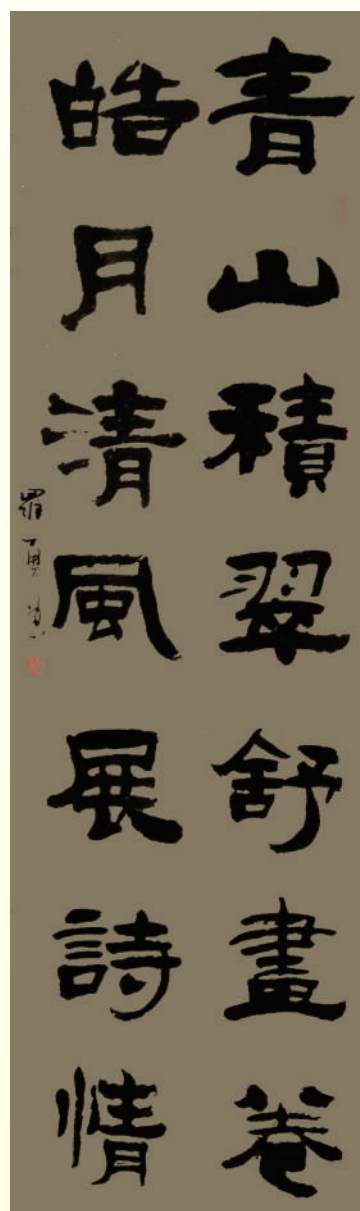 青山積翠舒畫卷
皓月清風展詩情